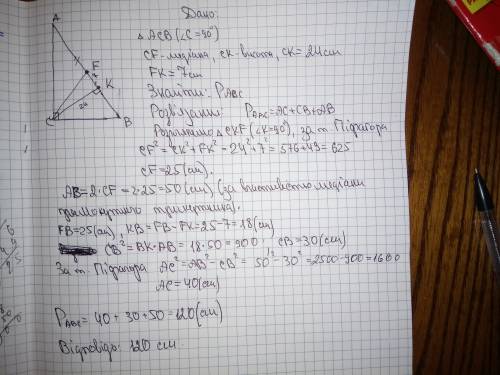 Дано:
A
△ ACB (∠C=90°)
CF-медіана, CK-висота, CK=24см
F
FK=7см
K
Знайти: PABC
24
Розв'язання: PABC=AC+CB+AB
C
B
Розглянемо △ CKF (∠K=90°), за т. Піфагора
CF²=CK²+FK²=24²+7²=576+49=625
CF=25(см).
AB=2·CF=2·25=50(см) (за властивістю медіани
прямокутного трикутника).
FB=25(см), KB=FB-FK=25-7=18(см)
CB²=BK·AB=18·50=900 CB=30(см)
За т. Піфагора AC²=AB²-CB²=50²-30²=2500-900=1600
AC=40(см)
PABC=40+30+50=120(см)
Відповідь: 120 см.